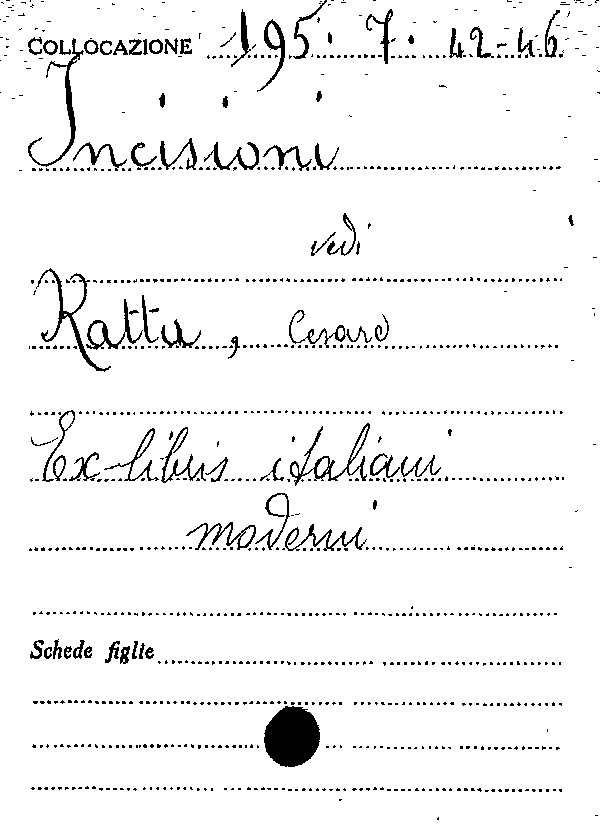 COLLOCAZIONE 195. 7. 42-46
Incisioni
vedi
Ratta, Cesare
Ex-libris italiani
moderni
Schede figlie